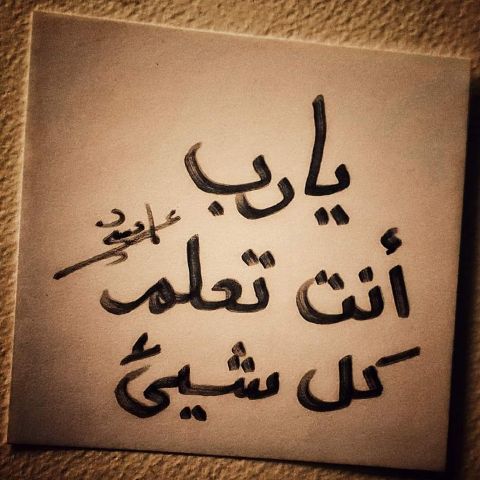 يارب
أنت تعلم
كل شيئ